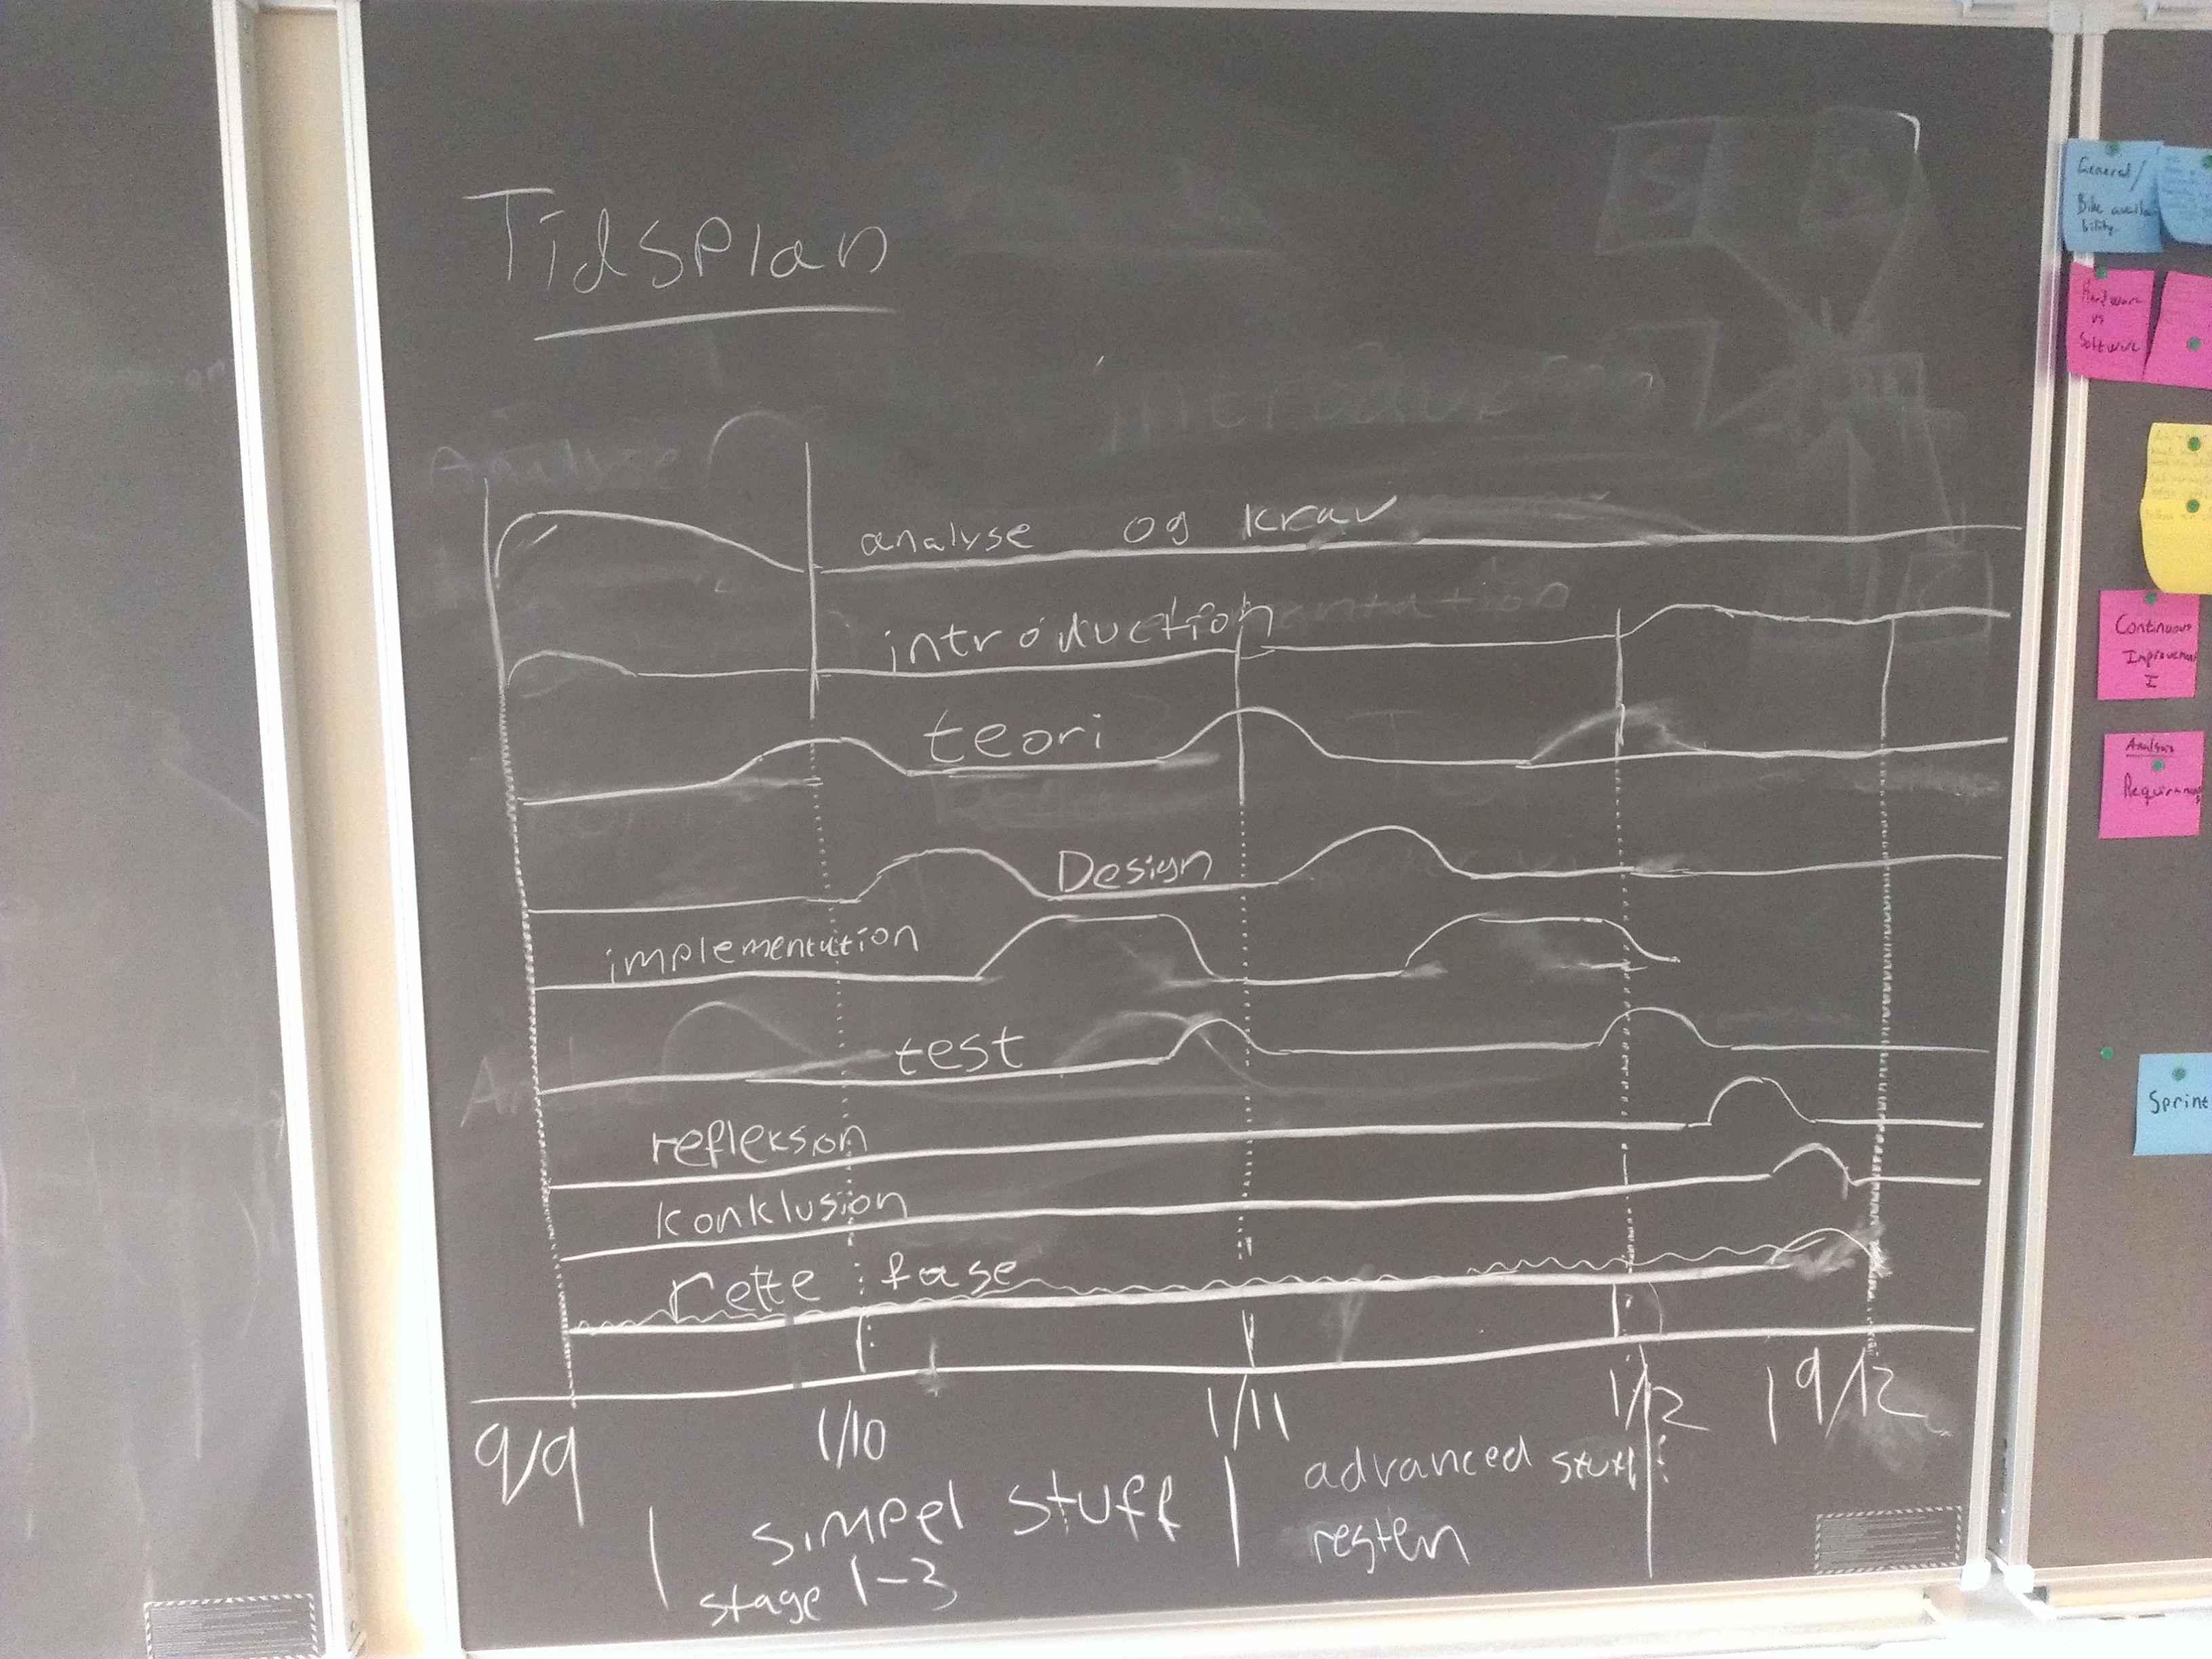 Tidsplan
Analyse
introduktion
analyse og krav
introduction
mentation
teori
Design
implementation
test
refleksion
konklusion
rette fase
9/9
1/10
1/11
1/12
19/12
simpel stuff
stage 1-3
advanced stuff
resten
General/
Bike availa
bility
Hardware
vs
Software
Continuous
Improvement
I
Analysis
Requirements
Sprint